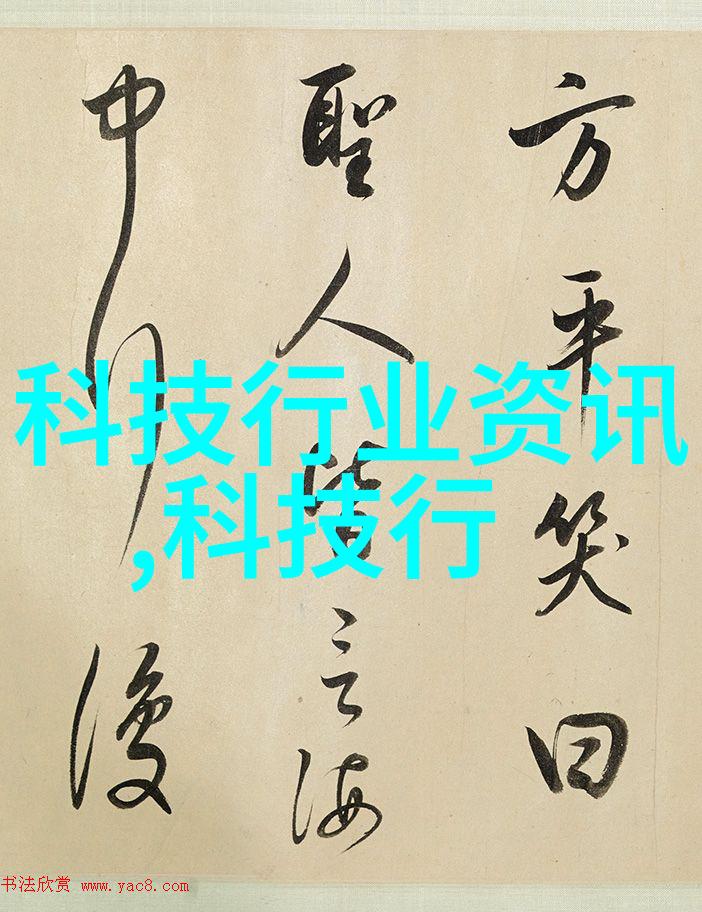 方平笑曰
聖人皆言海
中行復
科技行业资讯
,科技行
书法欣赏 www.yac8.com